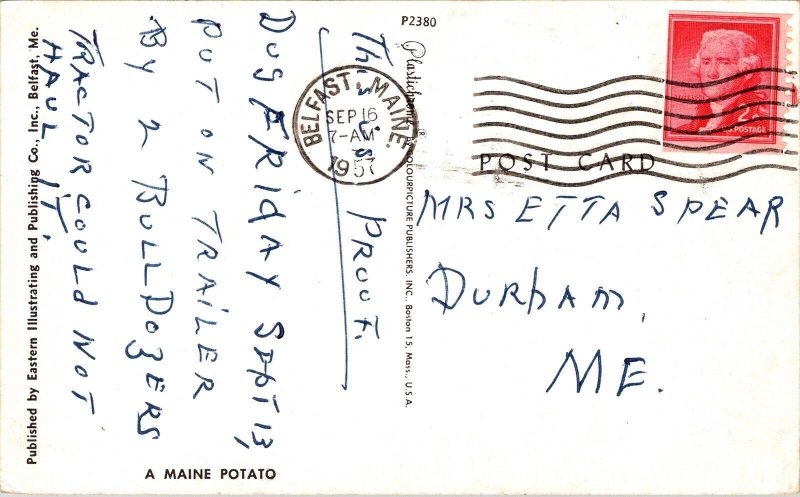 P2380
This is PROOF.
DUG FRIDAY SEPT 13,
PUT ON TRAILER
By 2 BULLDOZERS
TRACTOR COULD NOT
HAUL IT.
Published by Eastern Illustrating and Publishing Co., Inc., Belfast, Me.
A MAINE POTATO
BELFAST, MAINE.
SEP 16
7-AM
1957
POST CARD
2¢
POSTAGE
MRS ETTA SPEAR
Durham,
ME.
Plastichrome
COLOURPICTURE PUBLISHERS, INC., Boston 15, Mass., U.S.A.